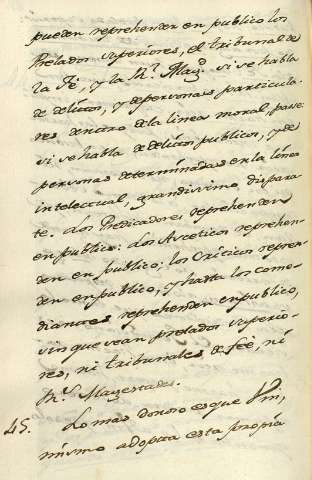 pueden reprehender en publico los
Prelados superiores, el tribunal de
la Fé, y la Rl. Magd. si se habla
de delitos, y de personas particula-
res dentro de la linea moral, passe:
si se habla de delitos publicos, y de
personas determinadas en la linea
intelectual, grandissimo dispara-
te. Los Predicadores reprehenden
en publico: Los Asceticos reprehen-
den en publico; los Criticos repren-
den en publico, y hasta los come-
diantes reprehenden en publico,
sin que sean prelados superio-
res, ni tribunales de feè, ni
Rs. Magestades.
45. Lo mas donoso es que Vm,
mismo adopta esta propia